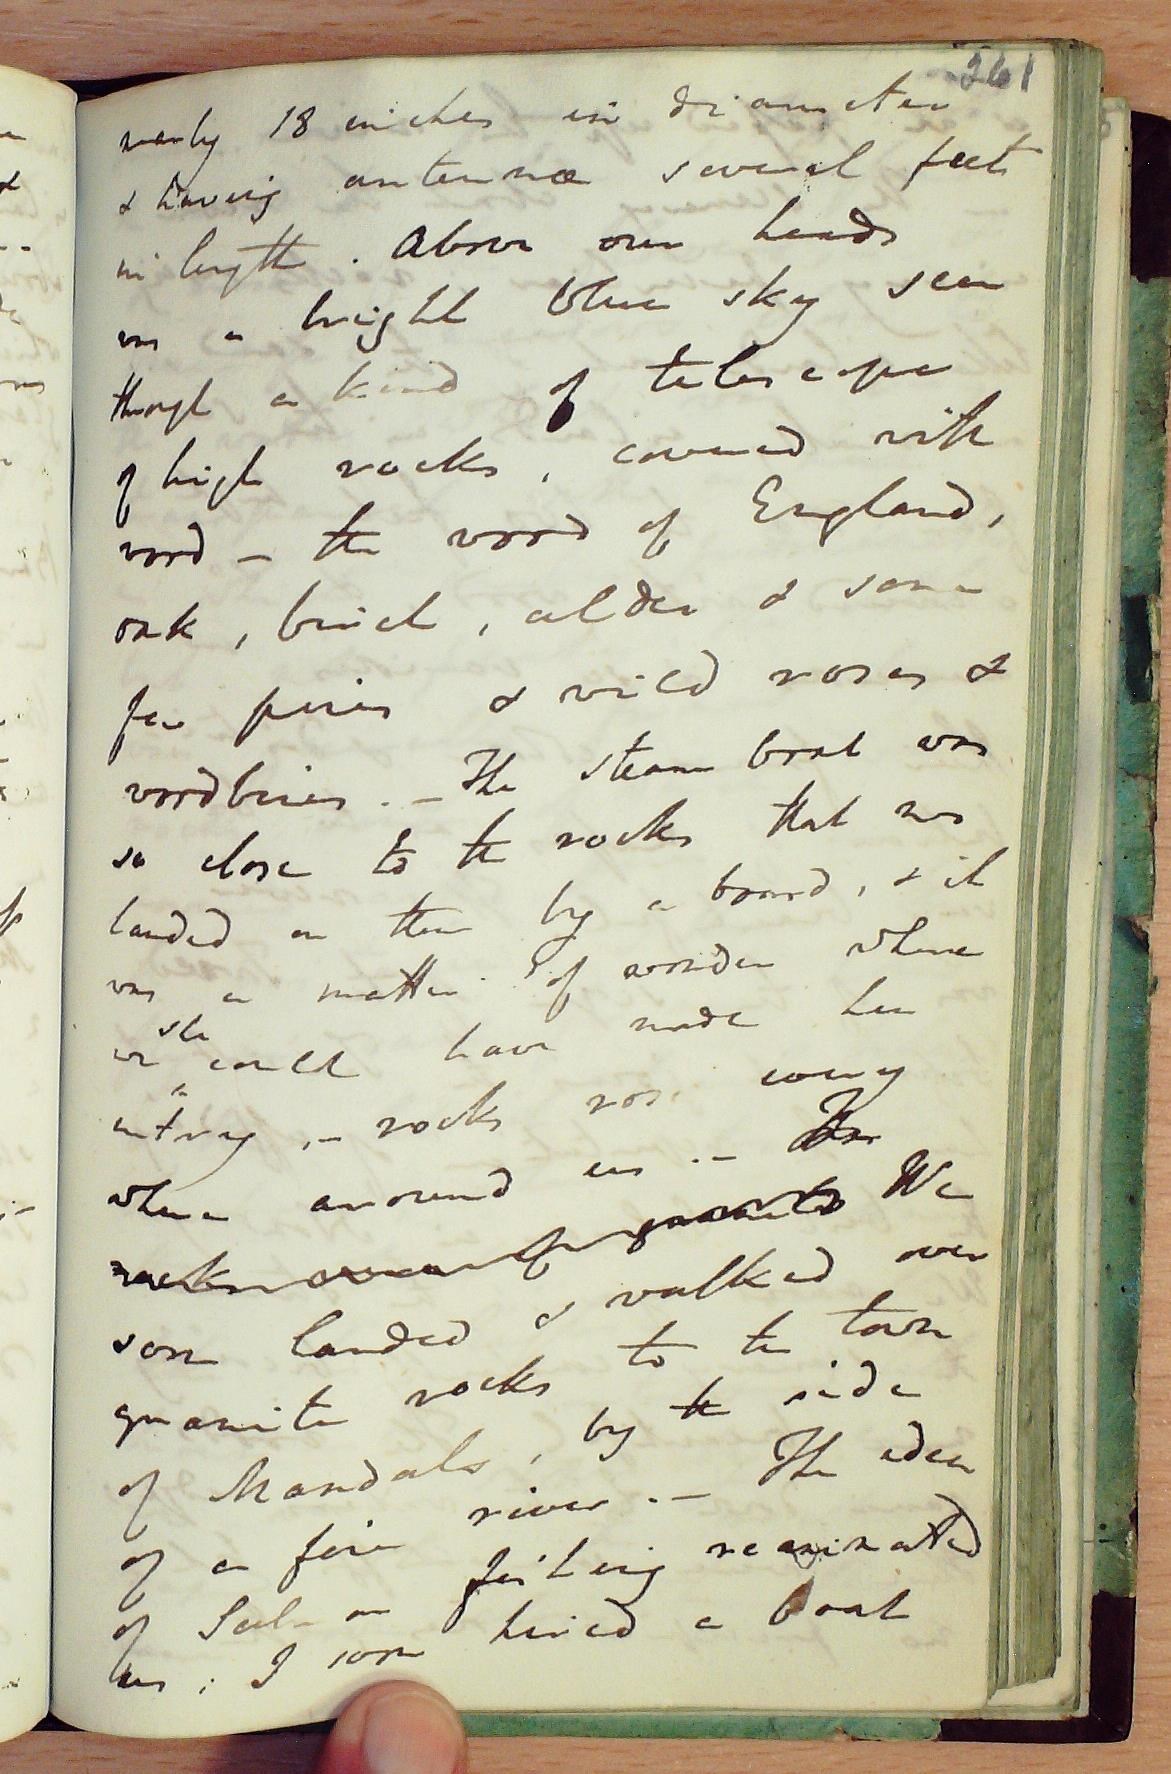 261
nearly 18 inches in diameter
& having antennæ several feet
in length. Above our heads
was a bright blue sky seen
through a kind of telescope
of high rocks, covered with
wood – the wood of England,
oak, birch, alder & some
few pines & wild roses &
woodbines. – The steam boat was
so close to the rocks that we
landed on them by a board, & it
was a matter of wonder where
we she could have made her
way, – rocks rose every
where around us. – The
rocks were of granite We
soon landed & walked over
granite rocks to the town
of Mandals, by the side
of a fine river. – The idea
of Salmon fishing reanimated
us; I soon hired a boat